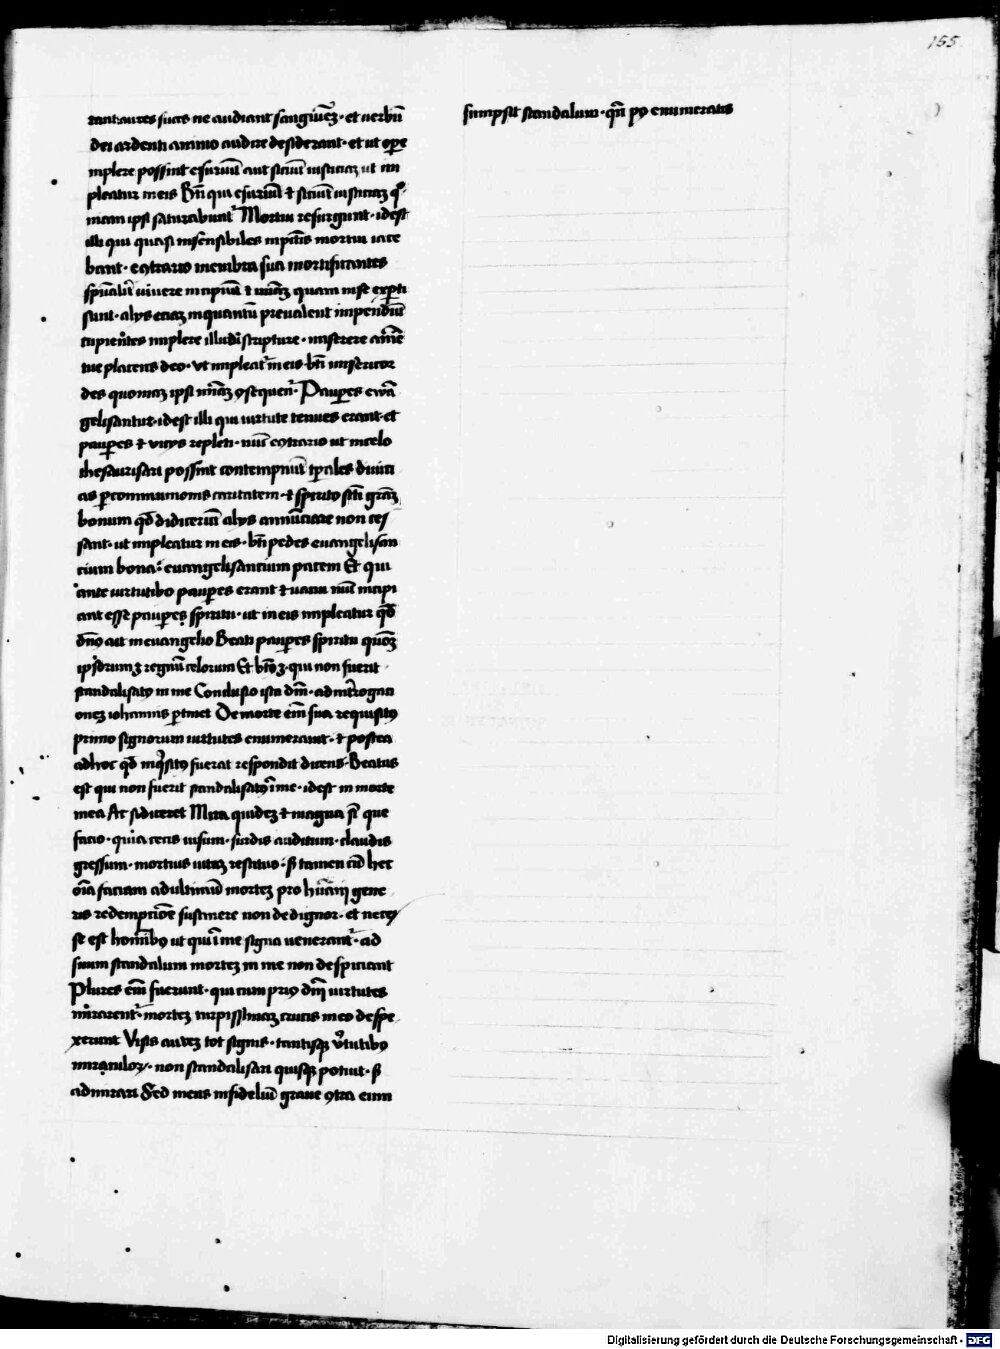 155
rant aures suas ne audiant sanguinẽ · et uerbũ
dei ardenti animo audire desiderant · et ut opere
implere possint esuriũt aut sitiũt iusticiaʒ ut im
pleatur in eis Bti̅ qui esuriũt ⁊ sitiũt iusticiaʒ qm̅
ipsi saturabunt᷑ Mortui resurgunt · idest
illi qui quasi insensibiles in pctis mortui iace
bant · ecotrario membra sua mortificantes
spũaliṫ uiuere incipiũt ⁊ uitaʒ quam in se experti
sunt · alijs eciaʒ inquantũ preualent impendũt
cupientes implere illud scripture · miserere anĩe
tue placens deo · Vt impleat᷑ in eis · bti̅ misericor
des quoniaʒ ipsi miãʒ ꝯsequent᷑ · Pauperes ewã
gelisantur · idest illi qui uirtute tenues erant · et
pauperes ⁊ vicijs repleti · nũc ecotrario ut in celo
thesaurisari possint contempnũt tp̅ales diuici
as ꝑ communionis caritatem · ⁊ spiritꝰ scti̅ gr̅aʒ
bonum qd̅ didicerũt alijs annũciare non ces
sant · ut impleatur in eis · bti̅ pedes euangelisan
cium bona · euangelisantium pacem Et qui
ante uirtutibꝰ pauperes erant ⁊ uacui nũc incipi
ant esse pauperes spiritu · ut in eis impleatur qd̅
dñs ait in euangelio Beati pauperes spiritu quoniaʒ
ipsorum ʒ regnũ celorum Et btũs ʒ · qui non fuerit
scandalisatꝰ in me Conclusio ista dni̅ · ad interrogaci
oneʒ iohannis ꝑtinet De morte em̅ sua requisitꝰ
primo signorum uirtutes enumerauit · ⁊ postea
adhoc qd̅ inq̊sitꝰ fuerat respondit dicens · Beatus
est qui non fuerit scandalisatꝰ ĩ me · idest in morte
mea Ac si diceret Mira quideʒ ⁊ magna sũt que
facio · quia cecis uisum · surdis auditum · claudis
gressum · mortuis uitaʒ restituo · sʒ tamen cũ hec
oĩa faciam ad ultimũ morteʒ pro hũani gene
ris redempcione sustinere non dedignor · et neces
se est hominibꝰ ut qui ĩ me signa uenerant᷑ · ad
suum scandalum morteʒ in me non despiciant
Plures em̅ fuerunt · qui cum priꝰ dni̅ uirtutes
mirarent᷑ · morteʒ turpissimaʒ crucis in eo despe
xerunt Visis auteʒ tot signis · tantisqʒ u̓tutibꝰ
miraculorꝝ · non scandalisari quisqʒ potuit · sʒ
admirari Sed mens infideliũ graue ꝯtra eum
sumpsit scandalum · qñ pꝰ enumeratis
Digitalisierung gefördert durch die Deutsche Forschungsgemeinschaft - DFG